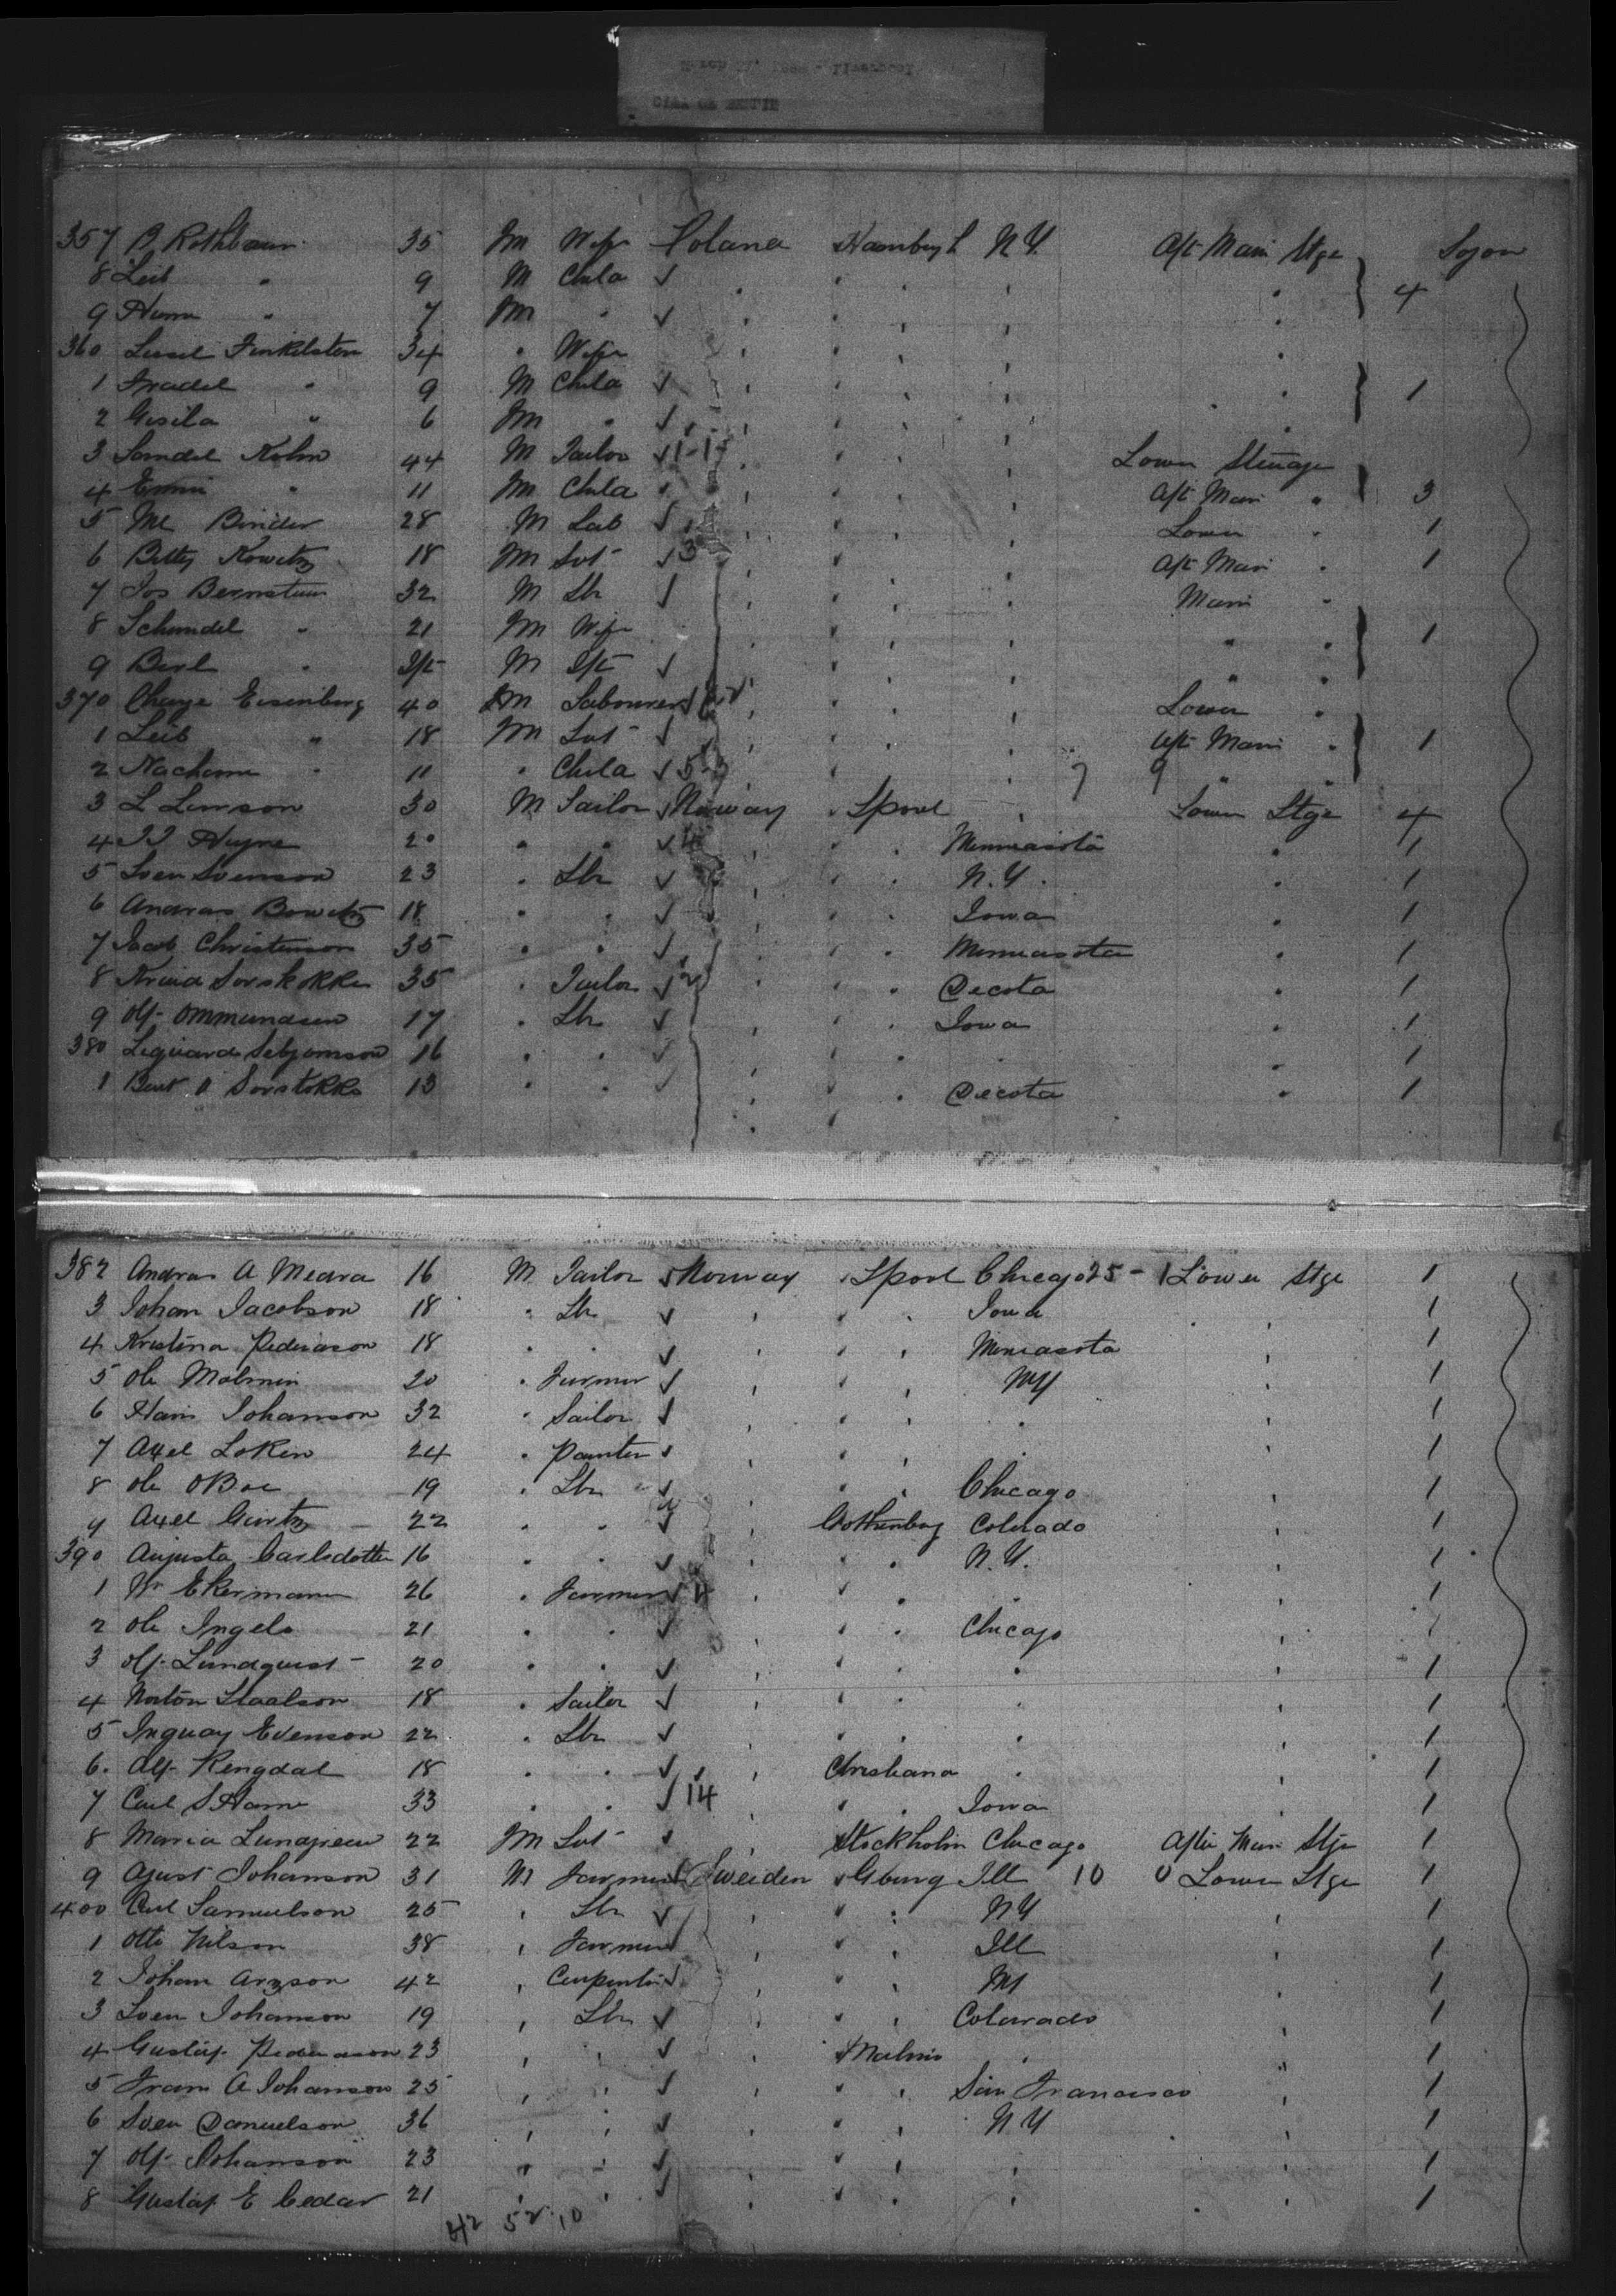 357 B. Rothbaum 35 M Wife Poland Hamburgh N.Y. Aft Main Stge Sojon
8 Leib " 9 M Child 4
9 " 7 M "
360 Finkilstein 34 " Wife
1 Fradel " 9 M Child 1
2 Gisila " 6 M "
3 Samdel Kohn 44 M Tailor 1-1- Lower Steerage
4 " 11 M Child Aft Main " 3
5 Ml Binder 28 M Lab Lower " 1
6 Betty Kowitz 18 M Svt 3 Aft Main " 1
7 Jos Bernstein 32 M Lbr Main "
8 Schmdel " 21 M Wife " " 1
9 Berl " Ift M Ift " "
370 Chaye Eisenberg 40 M Labourer Lower "
1 Leib " 18 M Svt Aft Main " 1
2 Nachome " 11 " Child 5-3 7 9 " "
3 L Lewson 30 M Sailor Norway Lpool Lower Stge 4
4 20 " " 4 " " Minneasota " 1
5 Sven Svenson 23 " Lbr " " N.Y. " 1
6 Andras Bowitz 18 " " " " Iowa " 1
7 Jacob Christenson 35 " " " " Minneasota " 1
8 Sorskokke 35 " Tailor 2 " " Decota " 1
9 Olf Ommundsen 17 " Lbr " " Iowa " 1
380 16 " " " " " " 1
1 Bent O Sorstokke 13 " " " " Decota " 1
382 Andras A Medra 16 M Tailor Norway Lpool Chicago 25 - 1 Lower Stge 1
3 Johan Jacobson 18 " Lbr " " Iowa " 1
4 Kristina Pederason 18 " " " " Minneasota " 1
5 Ole Malmin 20 " Farmer " " NY " 1
6 Hans Johanson 32 " Sailor " " " " 1
7 Axel Loken 24 " Painter " " " " 1
8 Ole OBoe 19 " Lbr " " Chicago " 1
9 Axel Gurtz 22 " " Gothenburg Colorado " 1
390 Augusta Carlsdotter 16 " " " " N.Y. " 1
1 Wm Ekermann 26 " Farmer 4 " " " " 1
2 Ole Ingels 21 " " " " Chicago " 1
3 Olf Lundquist 20 " " " " " " 1
4 Norton Staalson 18 " Sailor " " " " 1
5 Inguay Evenson 22 " Lbr " " " " 1
6. Alf Rengdal 18 " " Christiana " " 1
7 Carl S Hamr 33 " " 14 " " Iowa " 1
8 Maria Lundgreen 22 M Svt Stockholm Chicago After Main Stge 1
9 Agust Johanson 31 M Farmer Sweiden Gburg Ill 10 0 Lower Stge 1
400 Carl Samuelson 25 " Lbr " " NY " 1
1 Otto Nilson 38 " Farmer " " Ill " 1
2 Johan Arzson 42 " Carpenter " " " 1
3 Sven Johanson 19 " Lbr " " Colorado " 1
4 Gustaf Pederason 23 " " Malmo " " 1
5 Frans A Johanson 25 " " " " San Francisco " 1
6 Sven Samuelson 36 " " " " NY " 1
7 Olf Johanson 23 " " " " " " 1
8 Gustaf E Cedar 21 " " " " " " 1
42 52 10